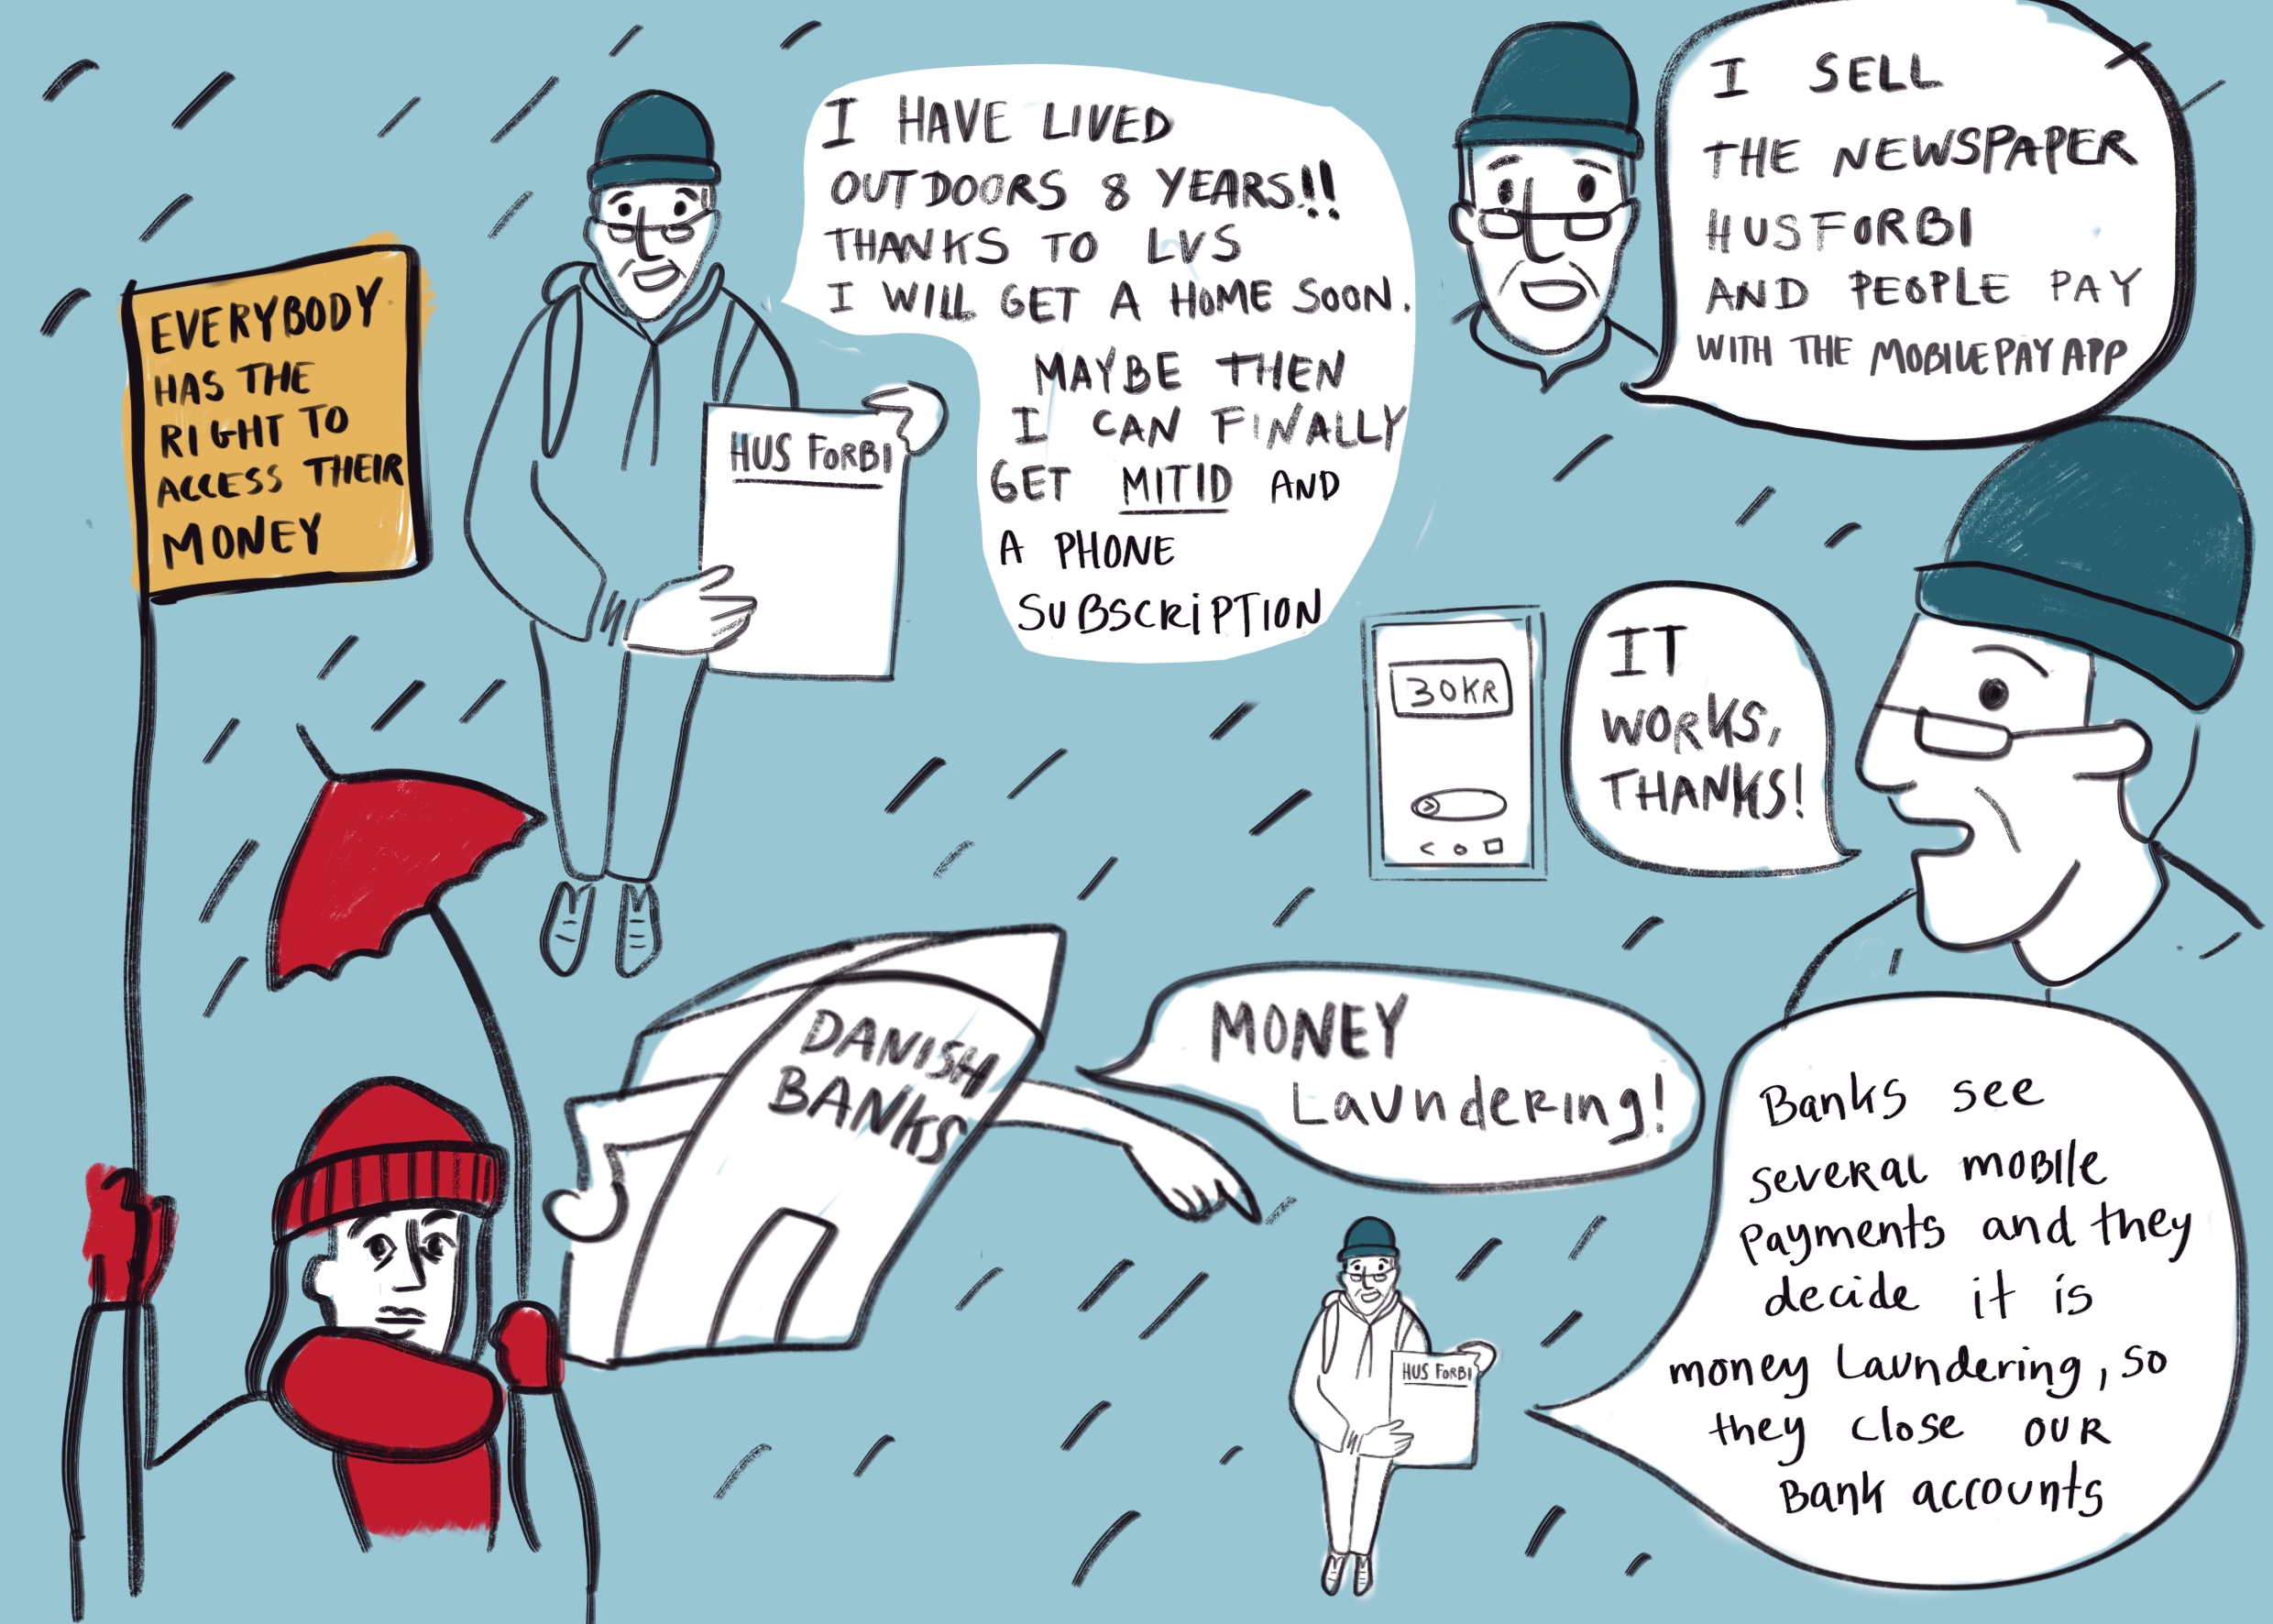 EVERYBODY
HAS THE
RIGHT TO
ACCESS THEIR
MONEY
HUS FORBI
I HAVE LIVED
OUTDOORS 8 YEARS!!
THANKS TO LVS
I WILL GET A HOME SOON.
MAYBE THEN
I CAN FINALLY
GET MITID AND
A PHONE
SUBSCRIPTION
I SELL
THE NEWSPAPER
HUSFORBI
AND PEOPLE PAY
WITH THE MOBILEPAY APP
30KR
IT
WORKS,
THANKS!
DANISH
BANKS
MONEY
Laundering!
HUS FORBI
Banks see
several mobile
payments and they
decide it is
money Laundering, so
they close our
Bank accounts